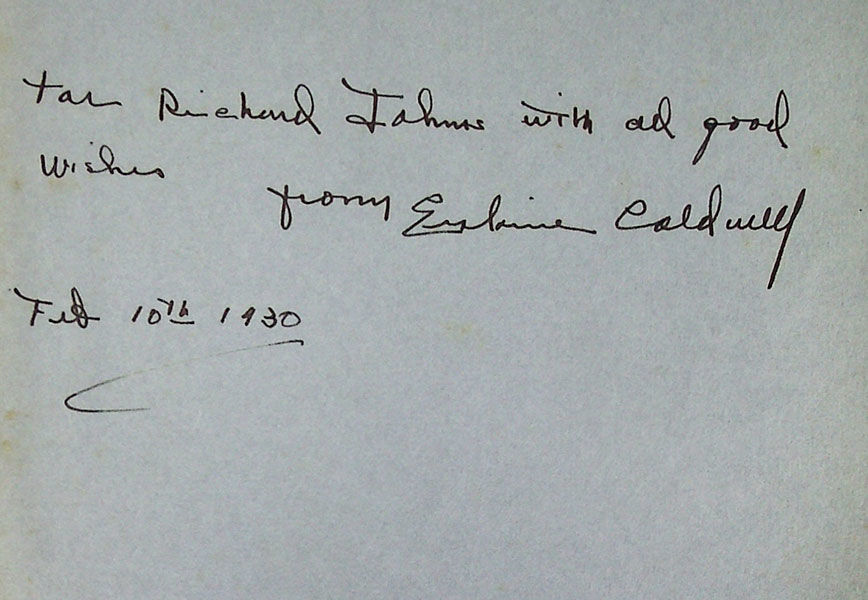 For Richard Johns with all good
wishes
from Erskine Caldwell
Feb 10th 1930